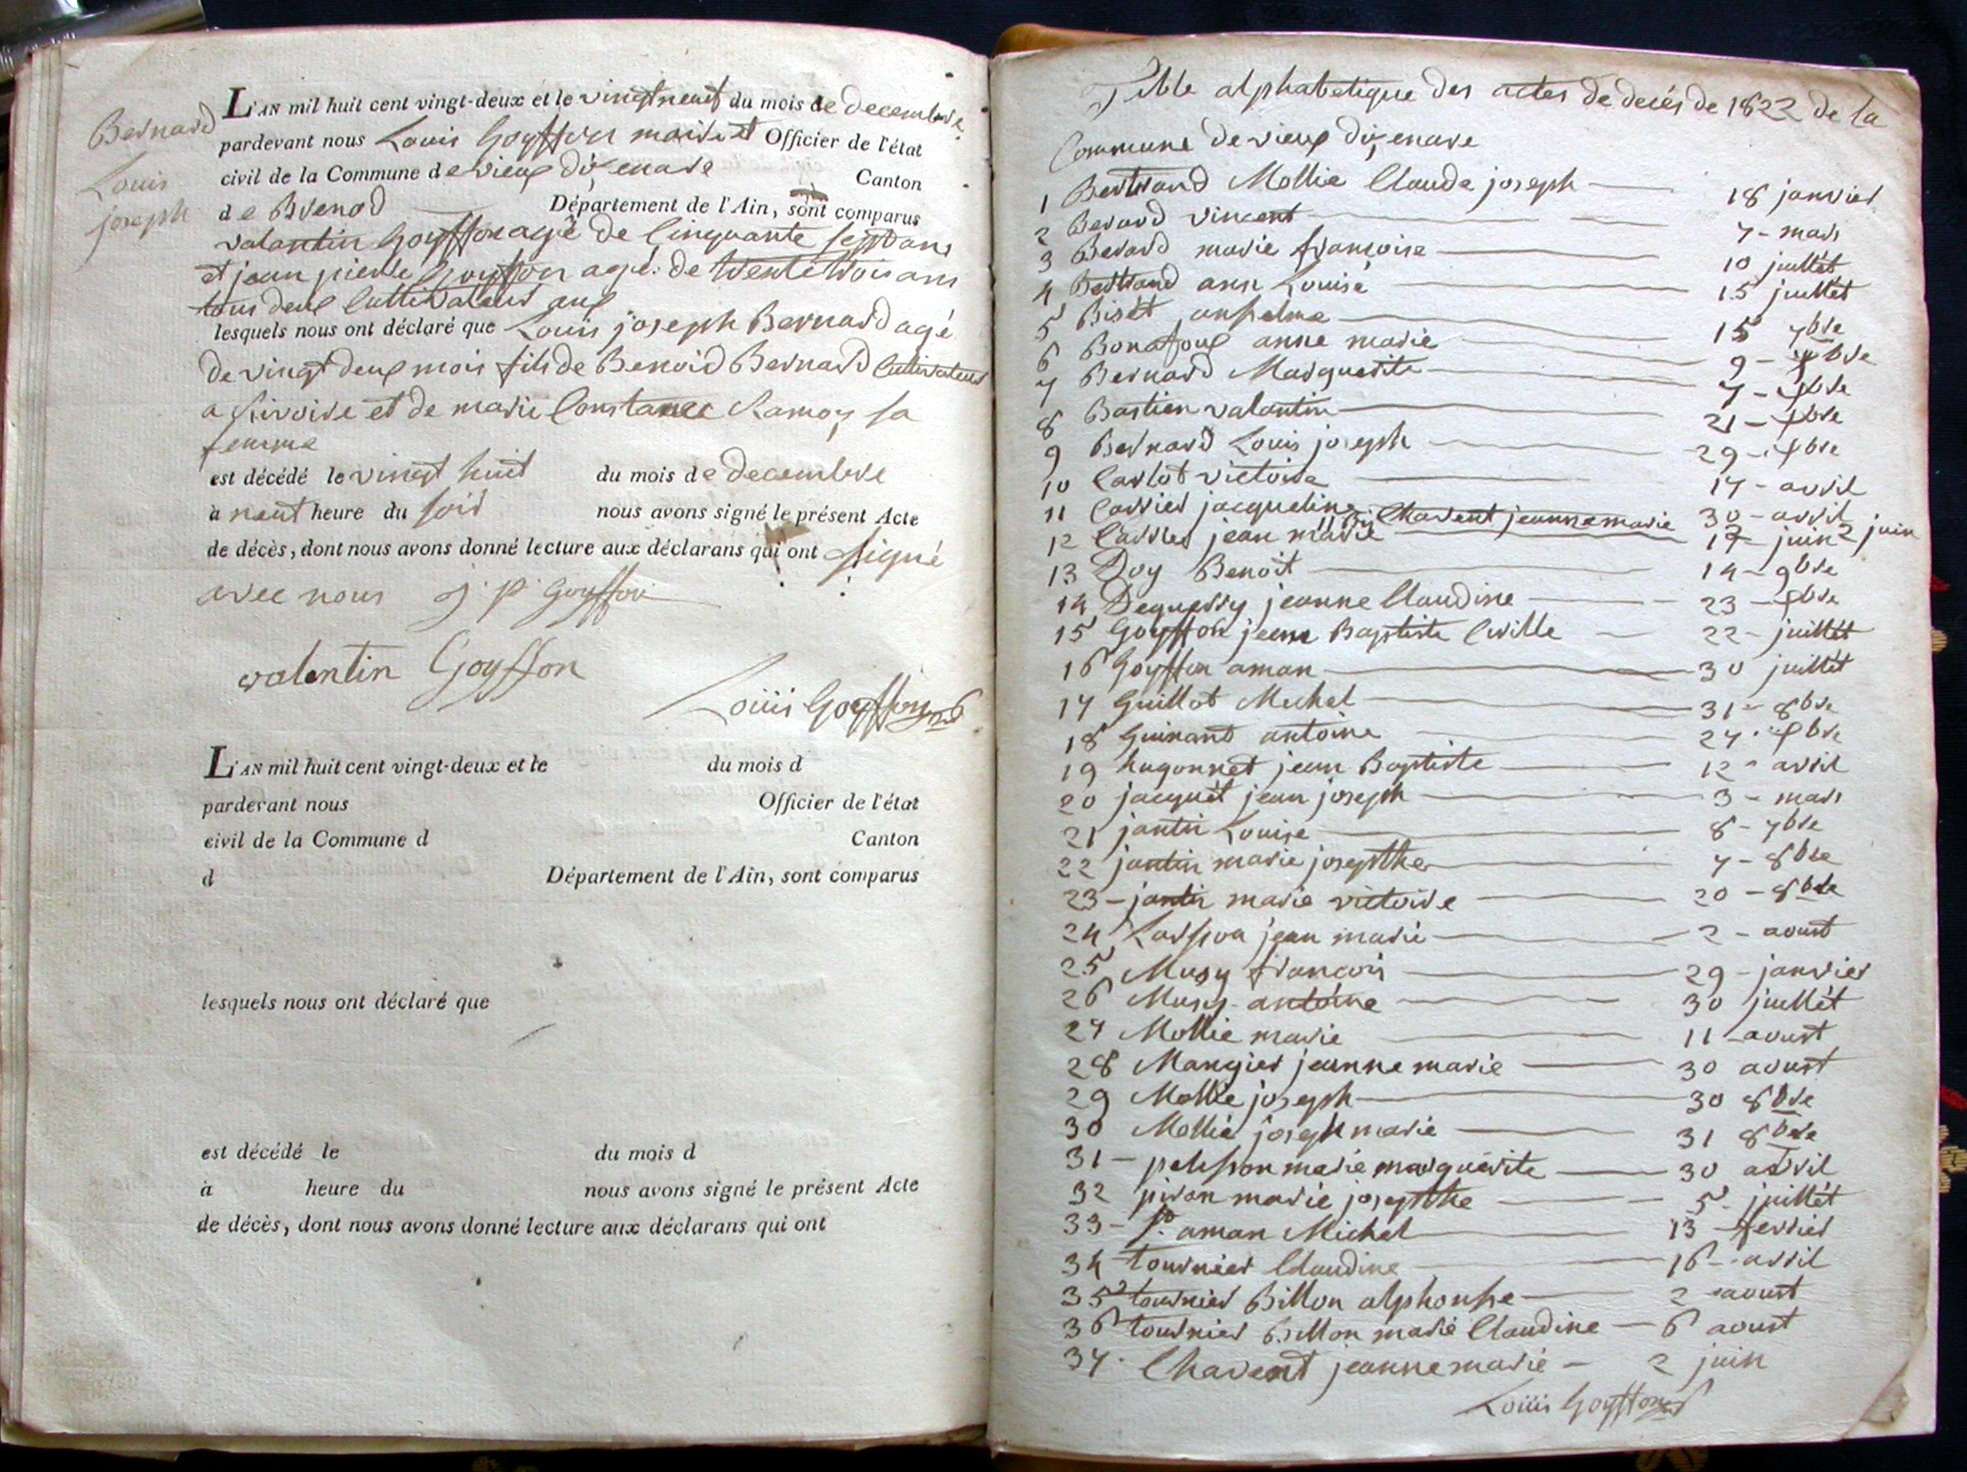 Bernard
Louis
joseph
L'AN mil huit cent vingt-deux et le vingt neuf du mois de decembre
pardevant nous Louis Goyffon maire et Officier de l'état
civil de la Commune de vieux d'izenave Canton
de Brenod Département de l'Ain, sont comparus
valantin Goyffon agé de Cinquante sept ans
et jean pierre Goyffon agé de trente trois ans
tous deux Cultivateurs
lesquels nous ont déclaré que Louis joseph Bernard agé
de vingt deux mois fils de Benoid Bernard Cultivateur
a Rivoire et de marie Constance Ramoz sa
femme
est décédé le vingt huit du mois de decembre
à neuf heure du soir nous avons signé le présent Acte
de décès, dont nous avons donné lecture aux déclarans qui ont signé
avec nous j. p. goyffon
valentin Goyffon
Loüis Goyffon
L'AN mil huit cent vingt-deux et le du mois d
pardevant nous Officier de l'état
civil de la Commune d Canton
d Département de l'Ain, sont comparus
lesquels nous ont déclaré que
est décédé le du mois d
à heure du nous avons signé le présent Acte
de décès, dont nous avons donné lecture aux déclarans qui ont
Table alphabetique des actes de decés de 1822 de la
Commune de vieux d'izenave
1 Bertrand Mollie Claude joseph 18 janvier
2 Berard vincent 7 - mars
3 Berard marie françoise 10 juillet
4 Bertrand ann Louise 15 juillet
5 Biset anselme 15 7bre
6 Bonafoux anne marie 9 - Xbre
7 Bernard Marguerite 7 - Xbre
8 Bastien valantin 21 - Xbre
9 Bernard Louis joseph 29 - Xbre
10 Carlot victoire 17 - avril
11 Carrier jacqueline 30 - avril
bis Chavent jeanne marie 2 juin
12 Carrier jean marie 17 - juin
13 Doy Benoit 14 - 9bre
14 Deguerry jeanne Claudine 23 - Xbre
15 Goyffon jean Baptiste Cirille 22 - juillet
16 Goyffon aman 30 juillet
17 Guillot Michel 31 - 8bre
18 Guinant antoine 27 - Xbre
19 hugonnet jean Baptiste 12 - avril
20 jacquet jean joseph 3 - mars
21 jantin Louise 8 - 7bre
22 jantin marie josepthe 7 - 8bre
23 - jantin marie victoire 20 - 8bre
24 jean marie 2 - aoust
25 Musy françois 29 - janvier
26 Musy antoine 30 juillet
27 Mollie marie 11 aoust
28 Mangier jeanne marie 30 aoust
29 Mollie joseph 30 8bre
30 Mollie joseph marie 31 8bre
31 - pelisson marie marguérite 30 avril
32 piron marie josepthe 5 - juillet
33 - St. aman Michel 13 fevrier
34 tournier Claudine 16 - avril
35 tournier Billon alphonse 2 aoust
36 tournier Billon marie Claudine - 6 aoust
37 . Chavent jeanne marie - 2 juin
Loüis Goyffon